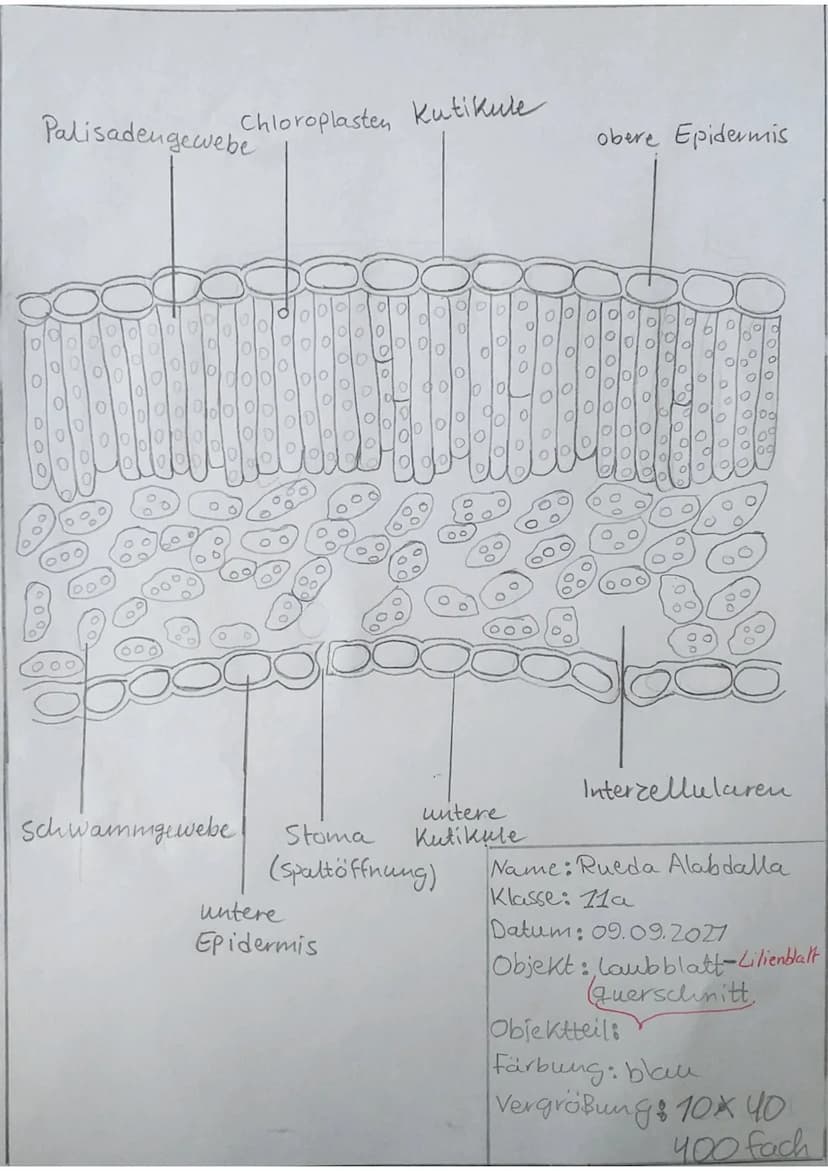 Palisadengewebe
Chloroplasten
Kutikule
obere Epidermis
Schwammgewebe
Stoma
(Spaltöffnung)
untere
Kutikule
Interzellularen
untere
Epidermis
Name: Rueda Alabdalla
Klasse: 11a
Datum: 09.09.2021
Objekt: Laubblatt-Lilienblatt
querschnitt
Objektteil:
Färbung: blau
Vergrößung: 10x40
400fach